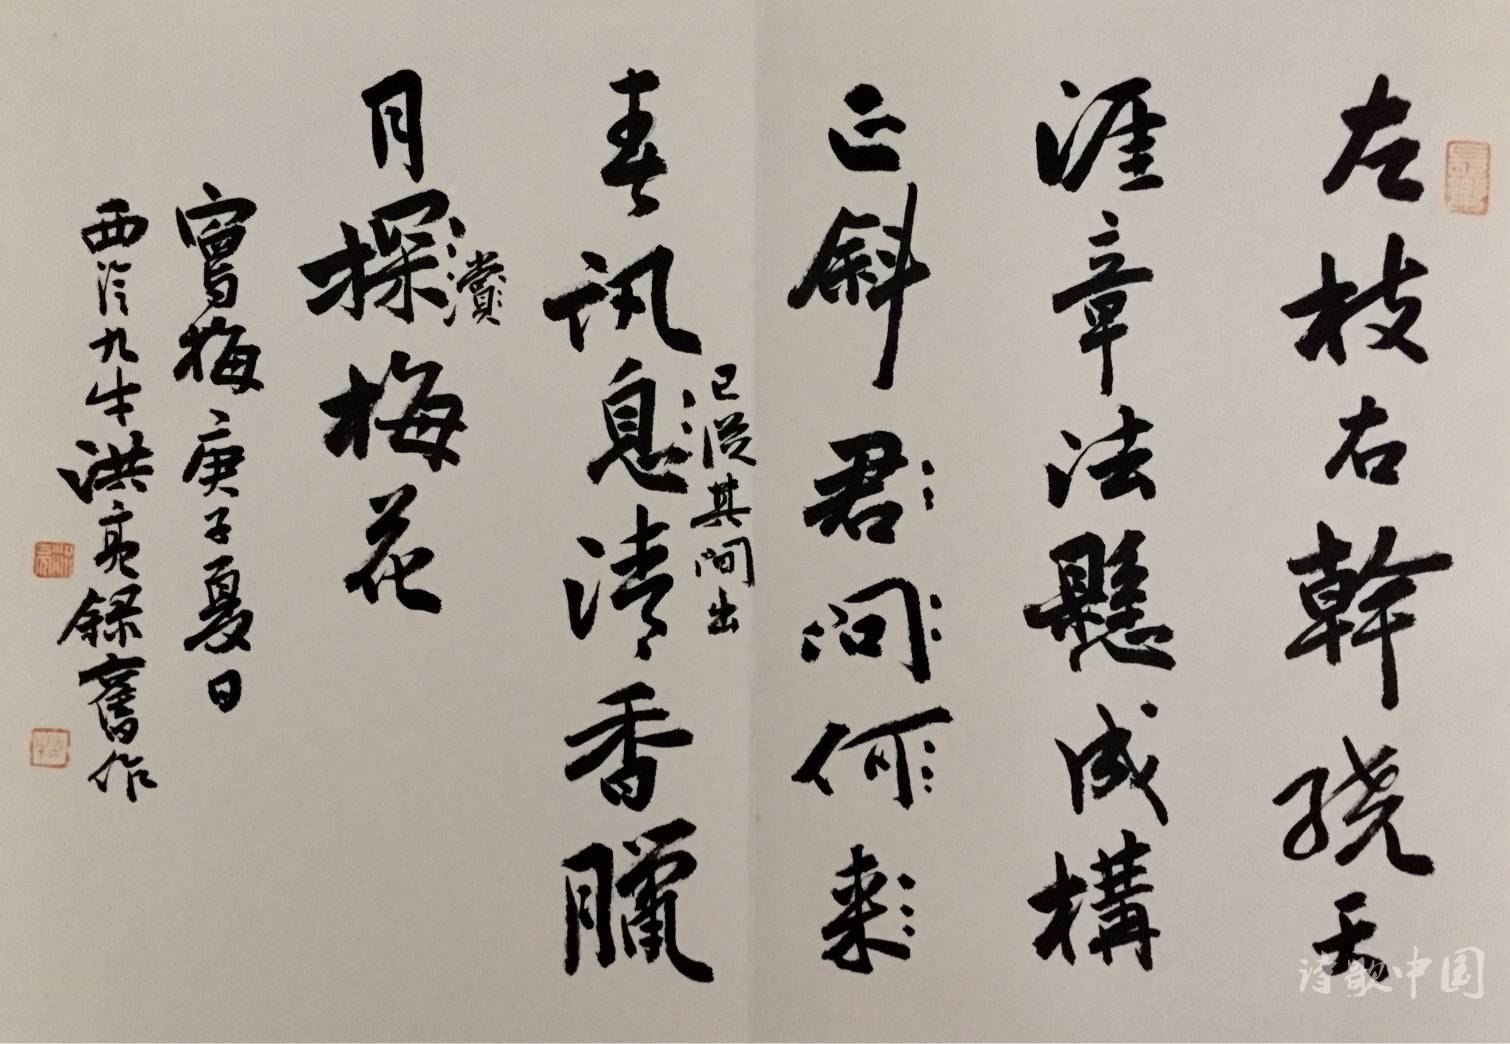 左枝右幹繞天
涯章法懸成構
正斜君问何来
已從其间出
春訊息清香臘
賞
月探梅花
寫梅庚子夏日
西泠九生洪亮録舊作
诗歌中国